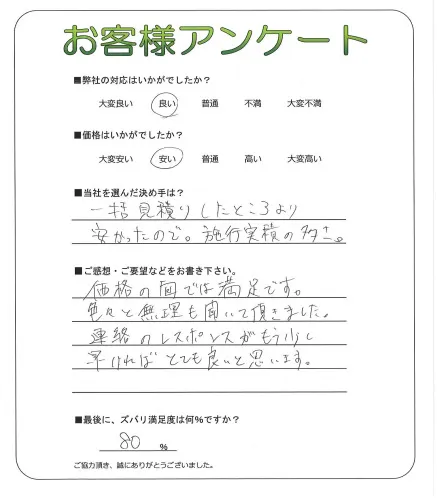 お客様アンケート
■弊社の対応はいかがでしたか？
大変良い 良い 普通 不満 大変不満
■価格はいかがでしたか？
大変安い 安い 普通 高い 大変高い
■当社を選んだ決め手は？
一括見積りしたところより
安かったので。施行実積の多さ。
■ご感想・ご要望などをお書き下さい。
価格の面では満足です。
色々と無理も聞いて頂きました。
連絡のレスポンスがもう少し
早ければとても良いと思います。
■最後に、ズバリ満足度は何%ですか？
80 %
ご協力頂き、誠にありがとうございました。